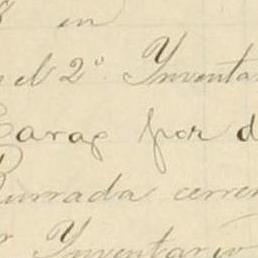 en
el 2º Inventa
Caras por d
Burrada cerre
Inventario